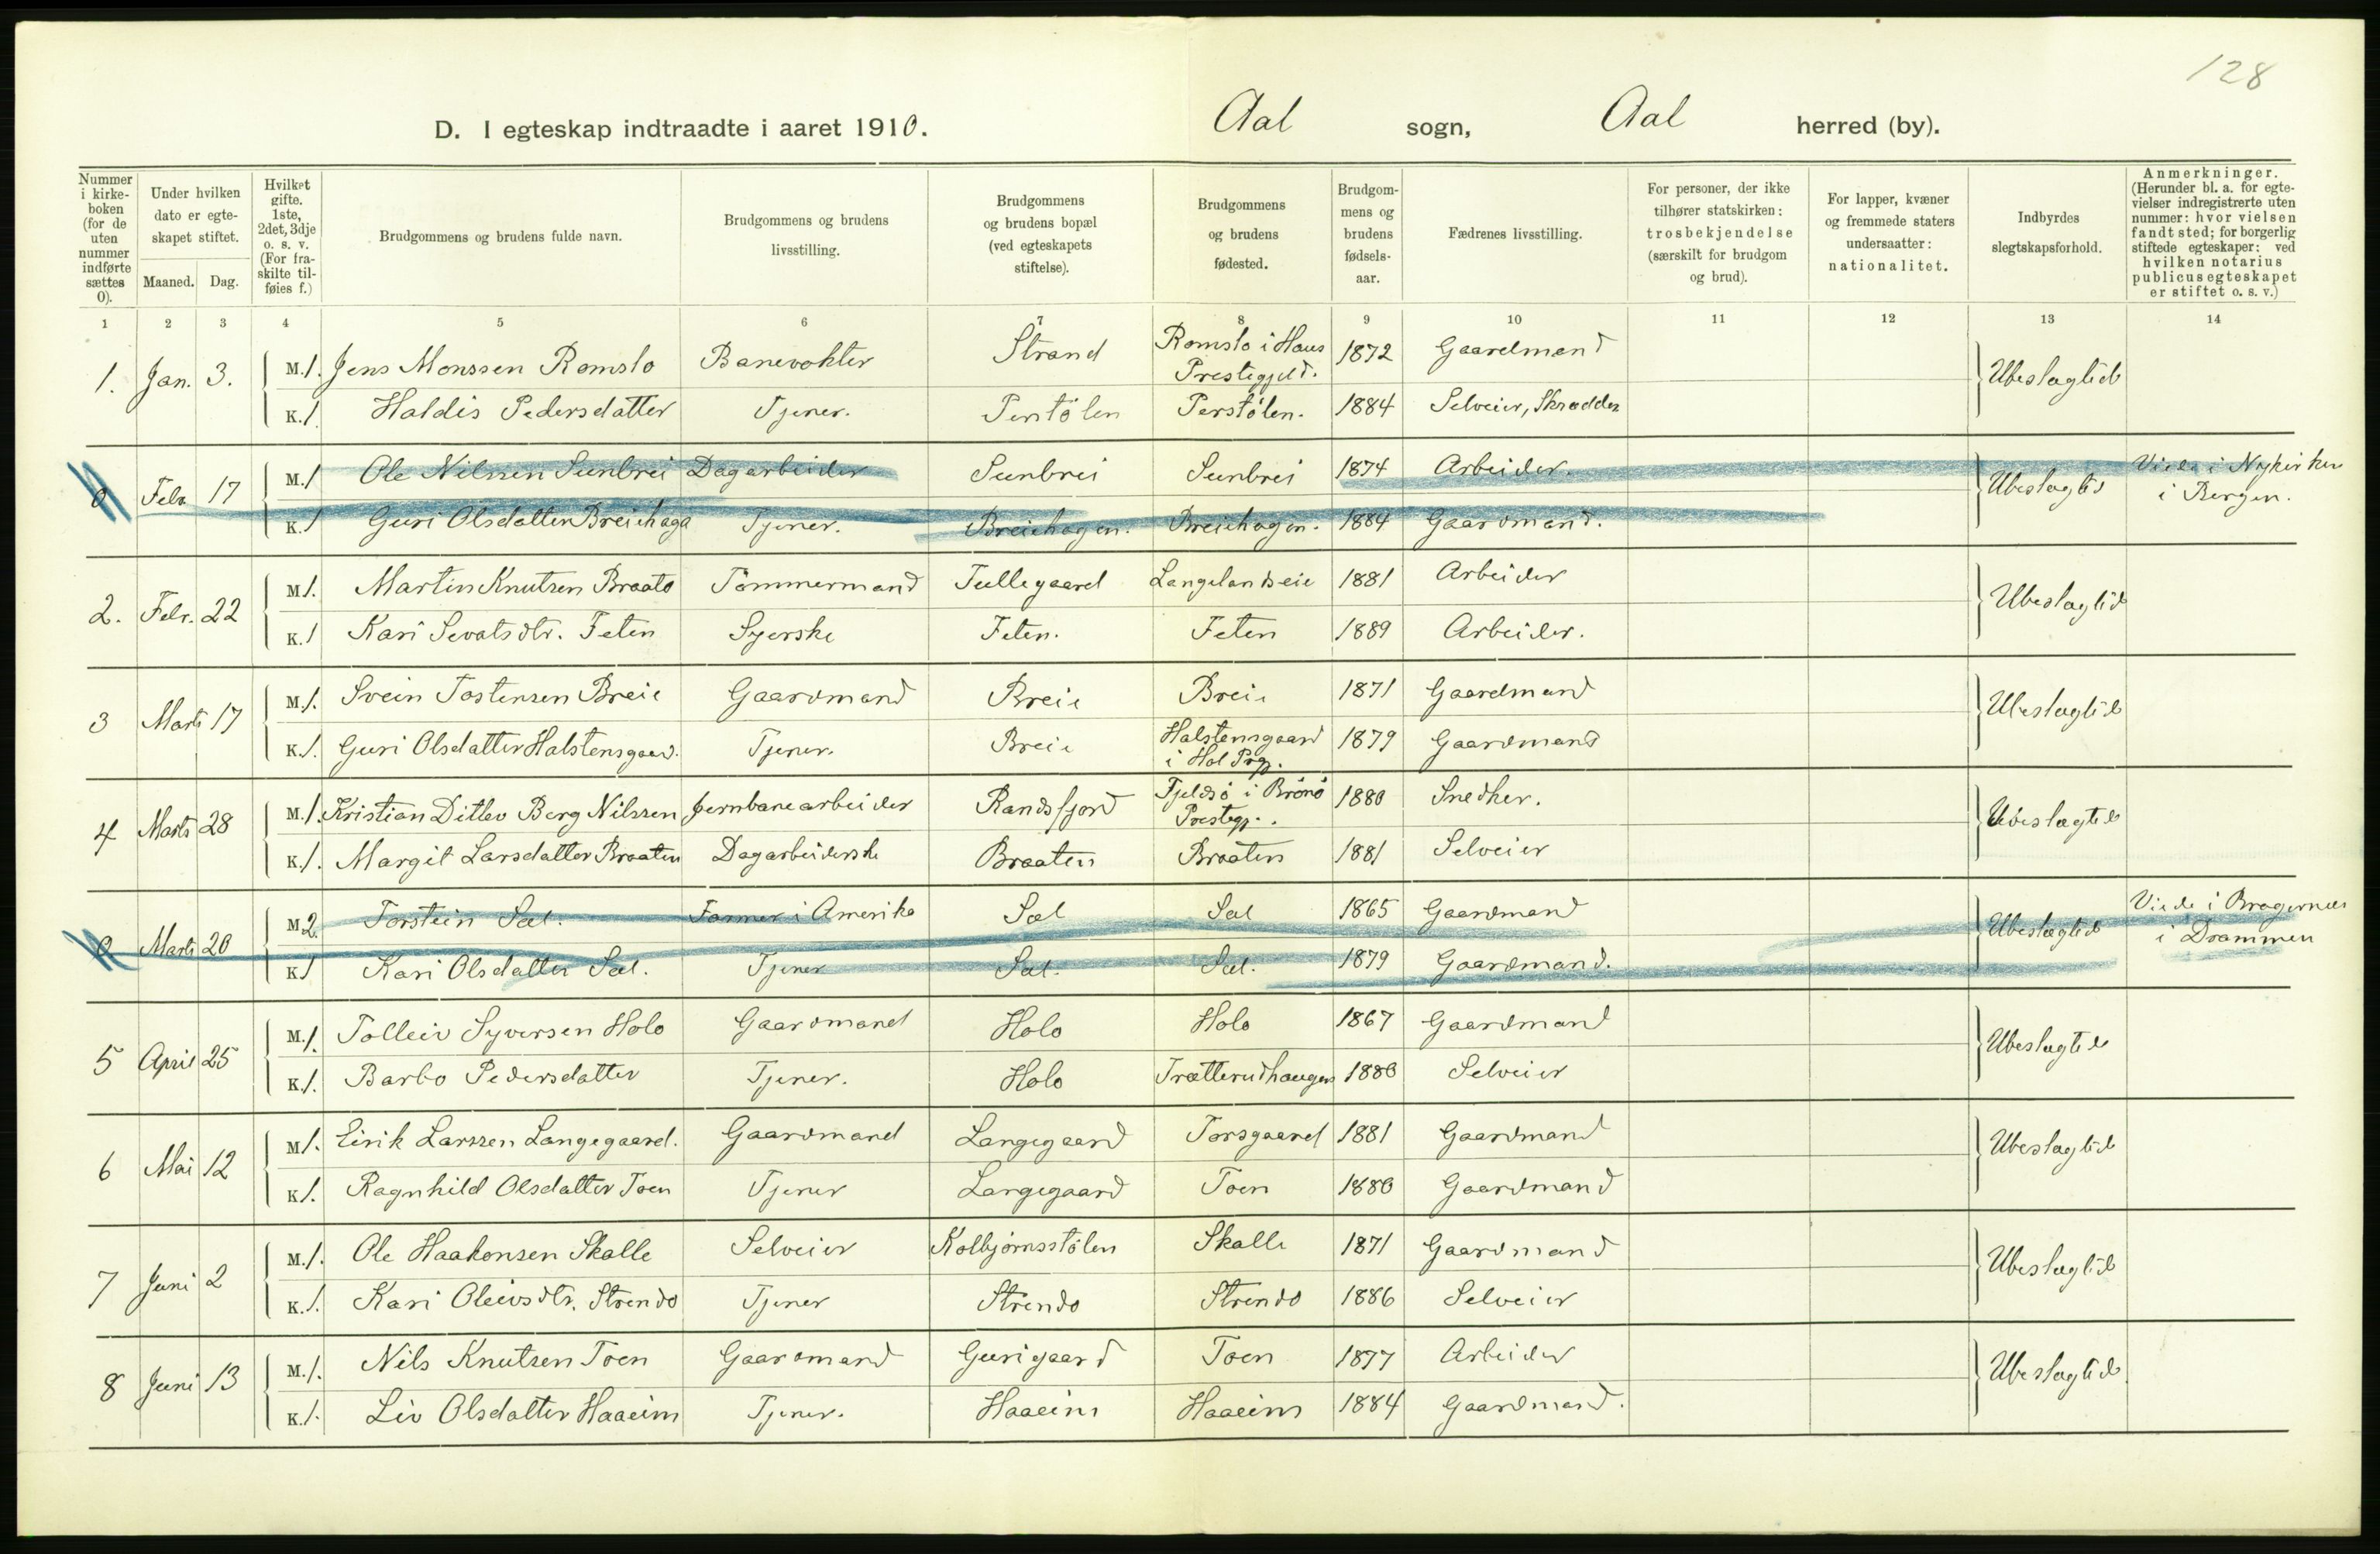 128
D. I egteskap indtraadte i aaret 1910. Aal sogn, Aal herred (by).
Nummer i kirke-boken (for de uten nummer indførte sættes 0).
Under hvilken dato er egte-skapet stiftet.
Maaned. Dag.
Hvilket gifte. 1ste, 2det, 3dje o. s. v. (For fra-skilte til-føies f.)
Brudgommens og brudens fulde navn.
Brudgommens og brudens livsstilling.
Brudgommens og brudens bopæl (ved egteskapets stiftelse).
Brudgommens og brudens fødested.
Brudgom-mens og brudens fødsels-aar.
Fædrenes livsstilling.
For personer, der ikke tilhører statskirken: trosbekjendelse (særskilt for brudgom og brud).
For lapper, kvæner og fremmede staters undersaatter: nationalitet.
Indbyrdes slegtskapsforhold.
Anmerkninger. (Herunder bl. a. for egte-vielser indregistrerte uten nummer: hvor vielsen fandt sted; for borgerlig stiftede egteskaper: ved hvilken notarius publicus egteskapet er stiftet o. s. v.)
1 2 3 4 5 6 7 8 9 10 11 12 13 14
1. Jan. 3. M. 1. Jens Monssen Romslo Banevokter Strand Romslo i Haus Prestegjeld. 1872 Gaardmand Ubeslegtid
K. 1. Haldis Pedersdatter Tjener. Perstölen Perstölen. 1884 Selveier, Skrædder
0 Febr. 17 M. 1 Ole Nilssen Sunbrei Dagarbeider Sunbrei Sunbrei 1874 Arbeider. Ubeslegtid Viede i Nykirken i Bergen.
K. 1 Guri Olsdatter Breihaga Tjener. Breiehagen. Breiehagen. 1884 Gaardmand.
2. Febr. 22 M. 1. Martin Knutsen Braato Tömmermand Tullegaard Langelandseie 1881 Arbeider Ubeslegtid
K. 1 Kari Sevatsdtr. Feten Syerske Feten. Feten 1889 Arbeider.
3 Marts 17 M. 1. Svein Tostensen Breie Gaardmand Breie Breie 1871 Gaardmand Ubeslegtid
K. 1. Guri Olsdatter Halstensgaard. Tjener. Breie Halstensgaard i Hol Prgj. 1879 Gaardmand
4 Marts 28 M. 1. Kristian Ditlev Berg Nilssen Jernbanearbeider Randsfjord Fjeldsö i Brönö Prestegj. 1880 Snedker. Ubeslegtid
K. 1. Margit Larsdatter Braaten Dagarbeiderske Braaten Braaten 1881 Selveier
0 Marts 20 M. 2. Torstein Sæl. Farmer i Amerika Sæl Sæl 1865 Gaardmand Ubeslegtid Viede i Bragernes i Drammen
K. 1 Kari Olsdatter Sæl. Tjener Sæl. Sæl. 1879 Gaardmand.
5 April 25 M. 1. Tolleiv Syversen Holo Gaardmand Holo Holo 1867 Gaardmand Ubeslegtid
K. 1. Barbo Pedersdatter Tjener. Holo Trætterudhaugen 1880 Selveier
6 Mai 12 M. 1. Eirik Larssen Langegaard. Gaardmand Langegaard Torsgaard 1881 Gaardmand Ubeslegtid
K. 1. Ragnhild Olsdatter Toen Tjener Langegaard Toen 1880 Gaardmand
7 Juni 2 M. 1. Ole Haakonsen Skalle Selveier Kolbjörnsstölen Skalle 1871 Gaardmand Ubeslegtid
K. 1. Kari Oleivsdtr. Strendo Tjener Strendo Strendo 1886 Selveier
8 Juni 13 M. 1. Nils Knutsen Toen Gaardmand Gurigaard Toen 1877 Arbeider Ubeslegtid
K. 1. Liv Olsdatter Haaeim Tjener. Haaeim Haaeim 1884 Gaardmand.